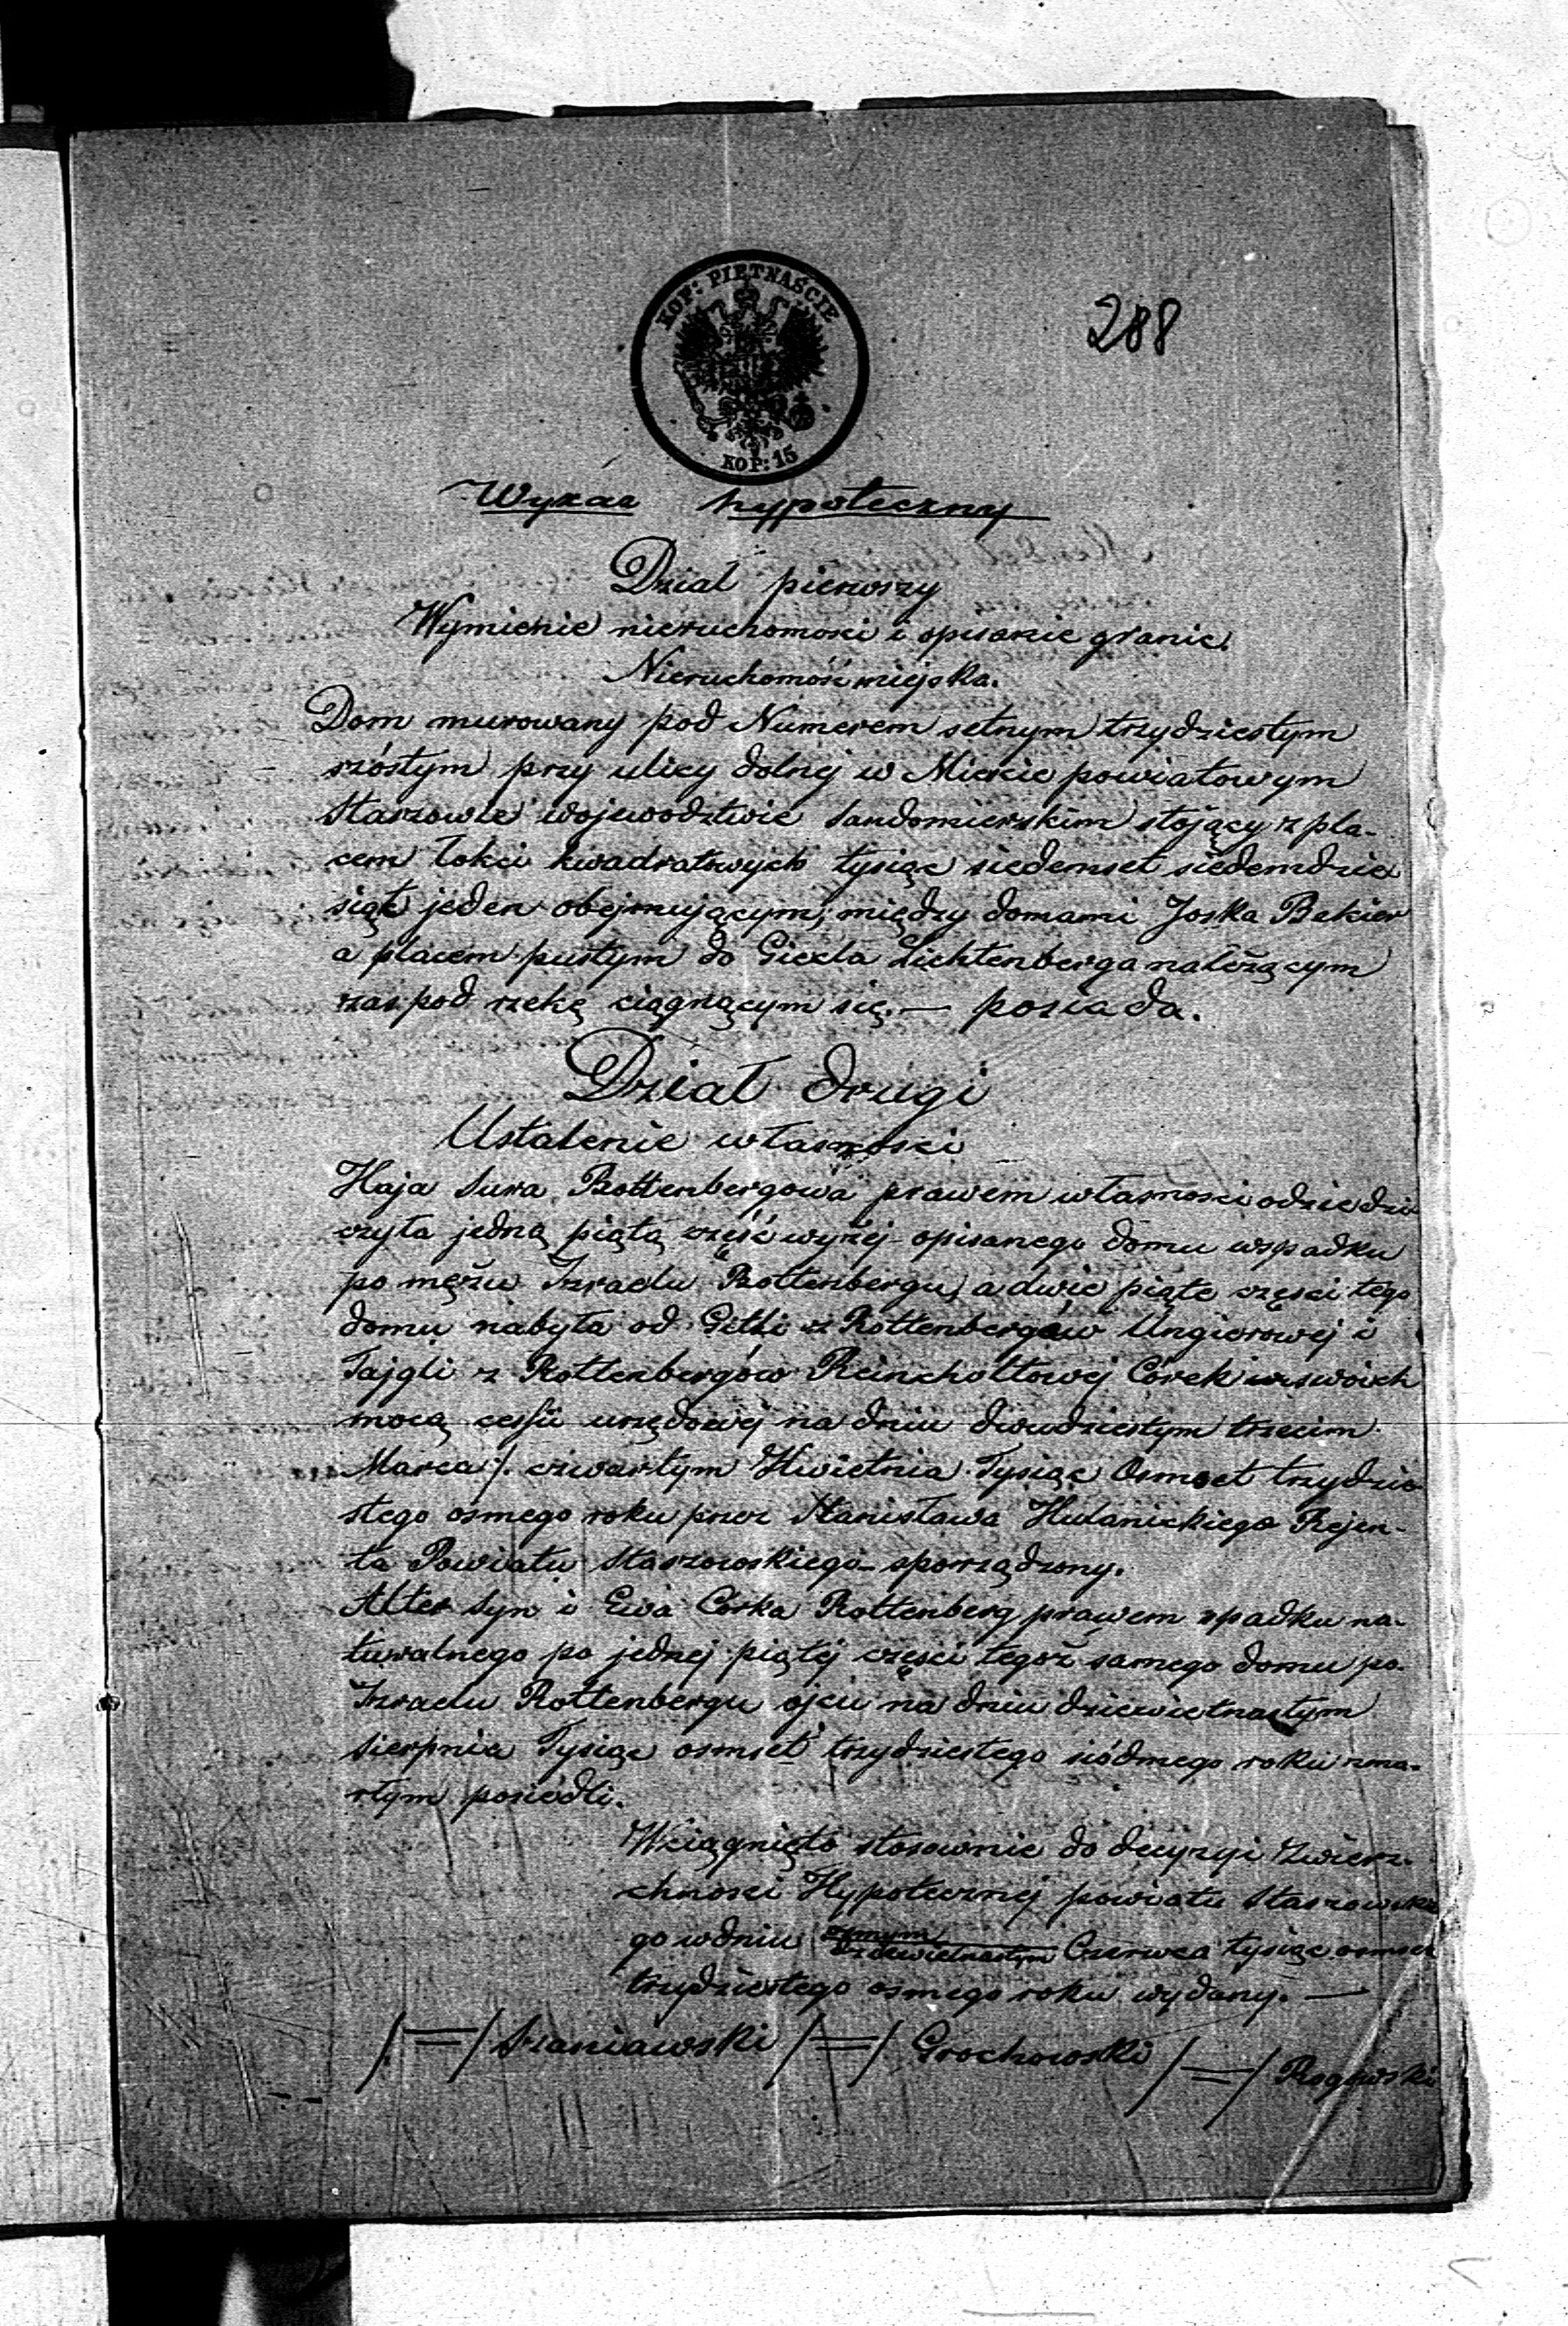 KOP: PIĘTNAŚCIE
KOP: 15
288
Wykaz hypoteczny
Dział pierwszy
Wymienie nieruchomosci i opisanie granic.
Nieruchomość miejska.
Dom murowany pod Numerem setnym trzydziestym
szóstym przy ulicy dolnej w Miescie powiatowym
Staszowie wojewodztwie Sandomierskim stojący z pla-
cem łokci kwadratowych tysiąc siedemset siedemdzie
siąt jeden obejmującym, między domami Joska Bekier
a placem pustym do Giecla Lichtenberga należącym
zas pod rzekę ciągnącym się. — posiada.
Dział drugi
Ustalenie własnosci
Haja Sura Rottenbergowa prawem własnosci odziedzi
czyła jedną piątą część wyżej opisanego domu wspadku
po mężu Izraelu Rottenbergu, a dwie piąte częsci tego
domu nabyła od Gitli z Rottenbergów Ungierowej i
Tajgli z Rottenbergów Reincholtowej Córek swoich
mocą cessii urzędowej na dniu dwudziestym trzecim
Marca /. czwartym Kwietnia Tysiąc Osmset trzydzie
stego osmego roku przez Stanisława Hulanickiego Rejen-
ta Powiatu Staszowskiego sporządzony.
Alter Syn i Ewa Córka Rottenberg prawem spadku na-
turalnego po jednej piątej częsci tegoż samego domu po
Izraelu Rottenbergu ojcu na dniu dziewietnastym
Sierpnia Tysiąc osmset trzydziestego siódmego roku zma-
rłym posiedli.
Wciągnięto stosownie do decyzyi Zwierz-
chnosci Hypotecznej powiatu Staszowskie
go wdniu ósmym dziewietnastym Czerwca tysiąc osmset
trzydziestego osmego roku wydanej. —
/=/ Szaniawski /=/ Grochowski /=/ Rogowski